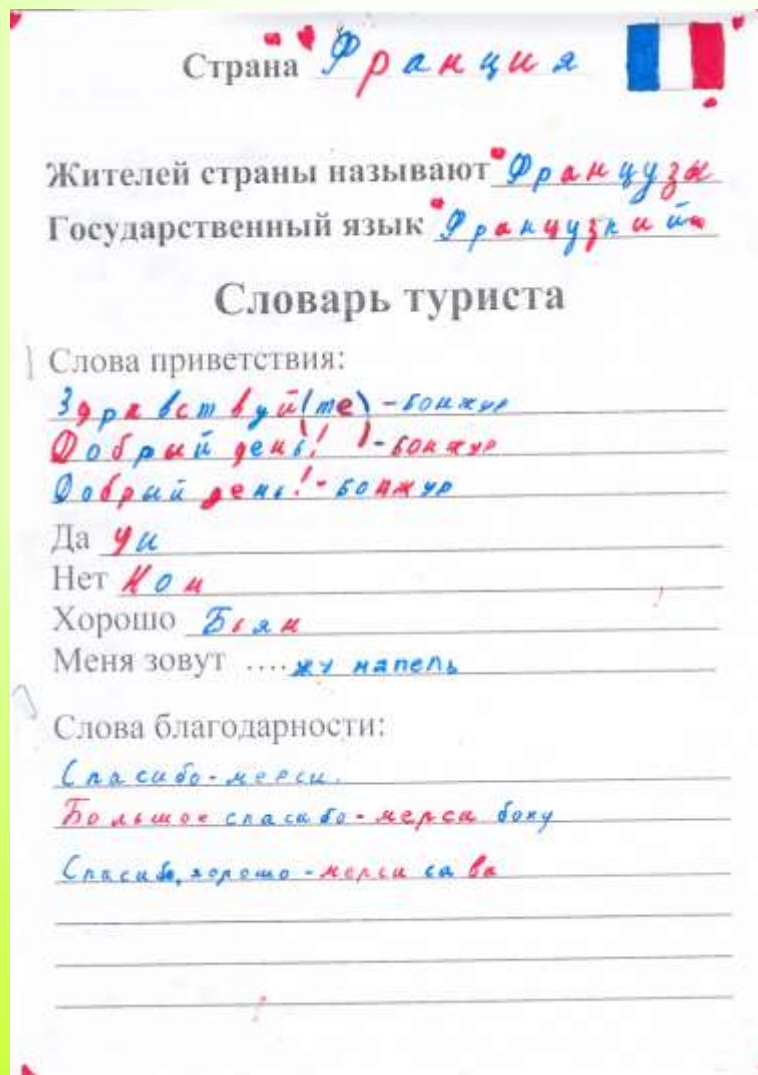 Страна Франция
Жителей страны называют Французы
Государственный язык Французкий
Словарь туриста
Слова приветствия:
Здравствуй(те) - бонжур
Добрый день! - бонжур
Добрый день! - бонжур
Да Уи
Нет Нон
Хорошо Бьян
Меня зовут .... жу мапель
Слова благодарности:
Спасибо - мерси.
Большое спасибо - мерси боку
Спасибо, хорошо - мерси са ва